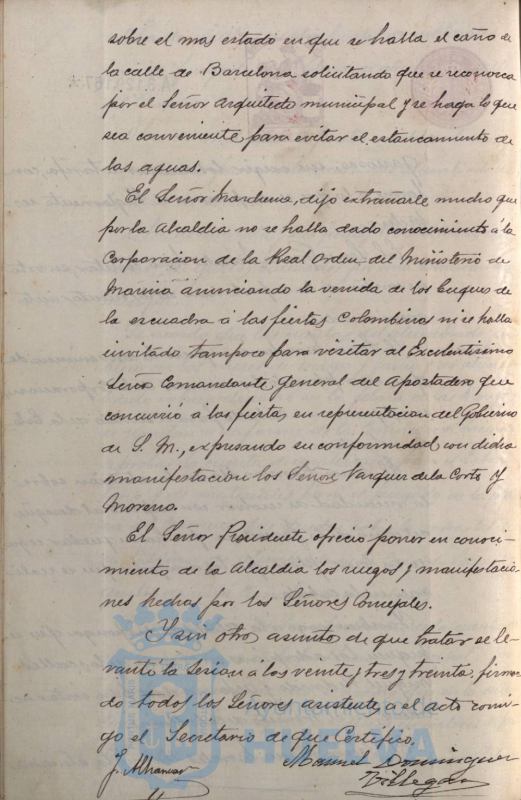 sobre el mas estado en que se halla el caño de
la calle de Barcelona solicitando que se reconozca
por el Señor Arquitecto municipal y se haga lo que
sea conveniente para evitar el estancamiento de
las aguas.
El Señor Marchena, dijo extrañarle mucho que
por la Alcaldia no se halla dado conocimiento á la
Corporacion de la Real Orden del Ministerio de
Marina anunciando la venida de los buques de
la escuadra á las fiestas Colombinas ni se halla
invitado tampoco para visitar al Excelentisimo
Señor Comandante General del Apostadero que
concurrió á las fiestas en representacion del Gobierno
de S. M., expresando su conformidad con dicha
manifestacion los Señores Vazquez de la Corte y
Moreno.
El Señor Presidente ofreció poner en conoci-
miento de la Alcaldia los ruegos y manifestacio-
nes hechos por los Señores Concejales.
Y sin otro asunto de que tratar se le-
vantó la Sesion á las veinte y tres y treinta, firman
do todos los Señores asistentes al acto conmi-
go el Secretario de que Certifico.
Manuel Dominguez
Villegas
HUELVA